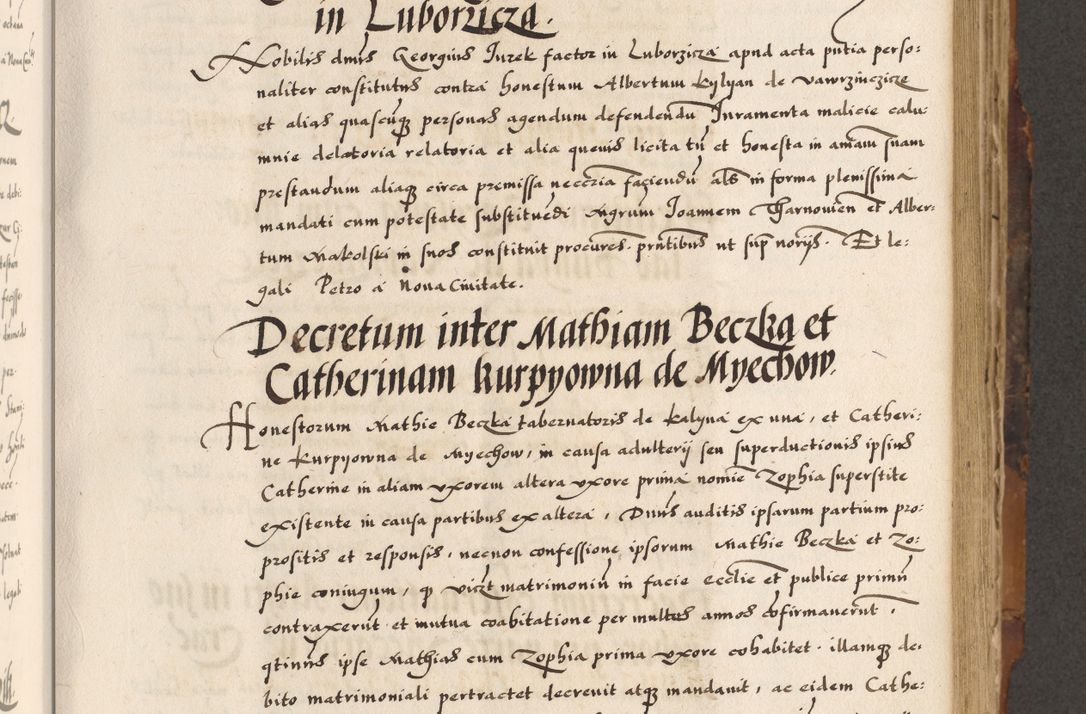 in Luborzicza.
Nobilis dnus Georgius Jurek factor in Luborzicza apud acta pntia perso:
naliter constitutus contra honestum Albertum Kylyan de Vawrzinczicze
et alias quascunq personas agendum defendendu Juramenta malicie calu:
mnie delatoria relatoria et alia quevis licita tn et honesta in amam suam
prestandum aliaq circa premissa necčria faciendu als in forma plenissima
mandati cum potestate substituedi Mgrum Joannem Tharnowien et Alber:
tum Makolski in suos constituit procures. pntibus ut sup noriis. Et le:
gali Petro a Nova Civitate.
Decretum inter Mathiam Beczka et
Catherinam Kurpyowna de Myechow.
Honestorum Mathie Beczka tabernatoris de Kalyna ex una, et Catheri:
ne Kurpyowna de Myechow, in causa adulterij seu superductionis ipsius
Catherine in aliam uxorem altera uxore prima nomie Zophia superstite
existente in causa partibus ex altera, Dnus auditis ipsarum partium pro:
prositis et responsis, necnon confessione ipsorum Mathie Beczka et Zo:
phie coniugum, q vicz matrimoniu in facie ecclie et publice primu
contraxerut et mutua coabitatione per multos annos cofirmaverut,
qtinus ipse Mathias cum Zophia prima uxore cohabitet. illamq de:
bito matrimoniali pertractet decrevit atq mandavit, ac eidem Cathe: